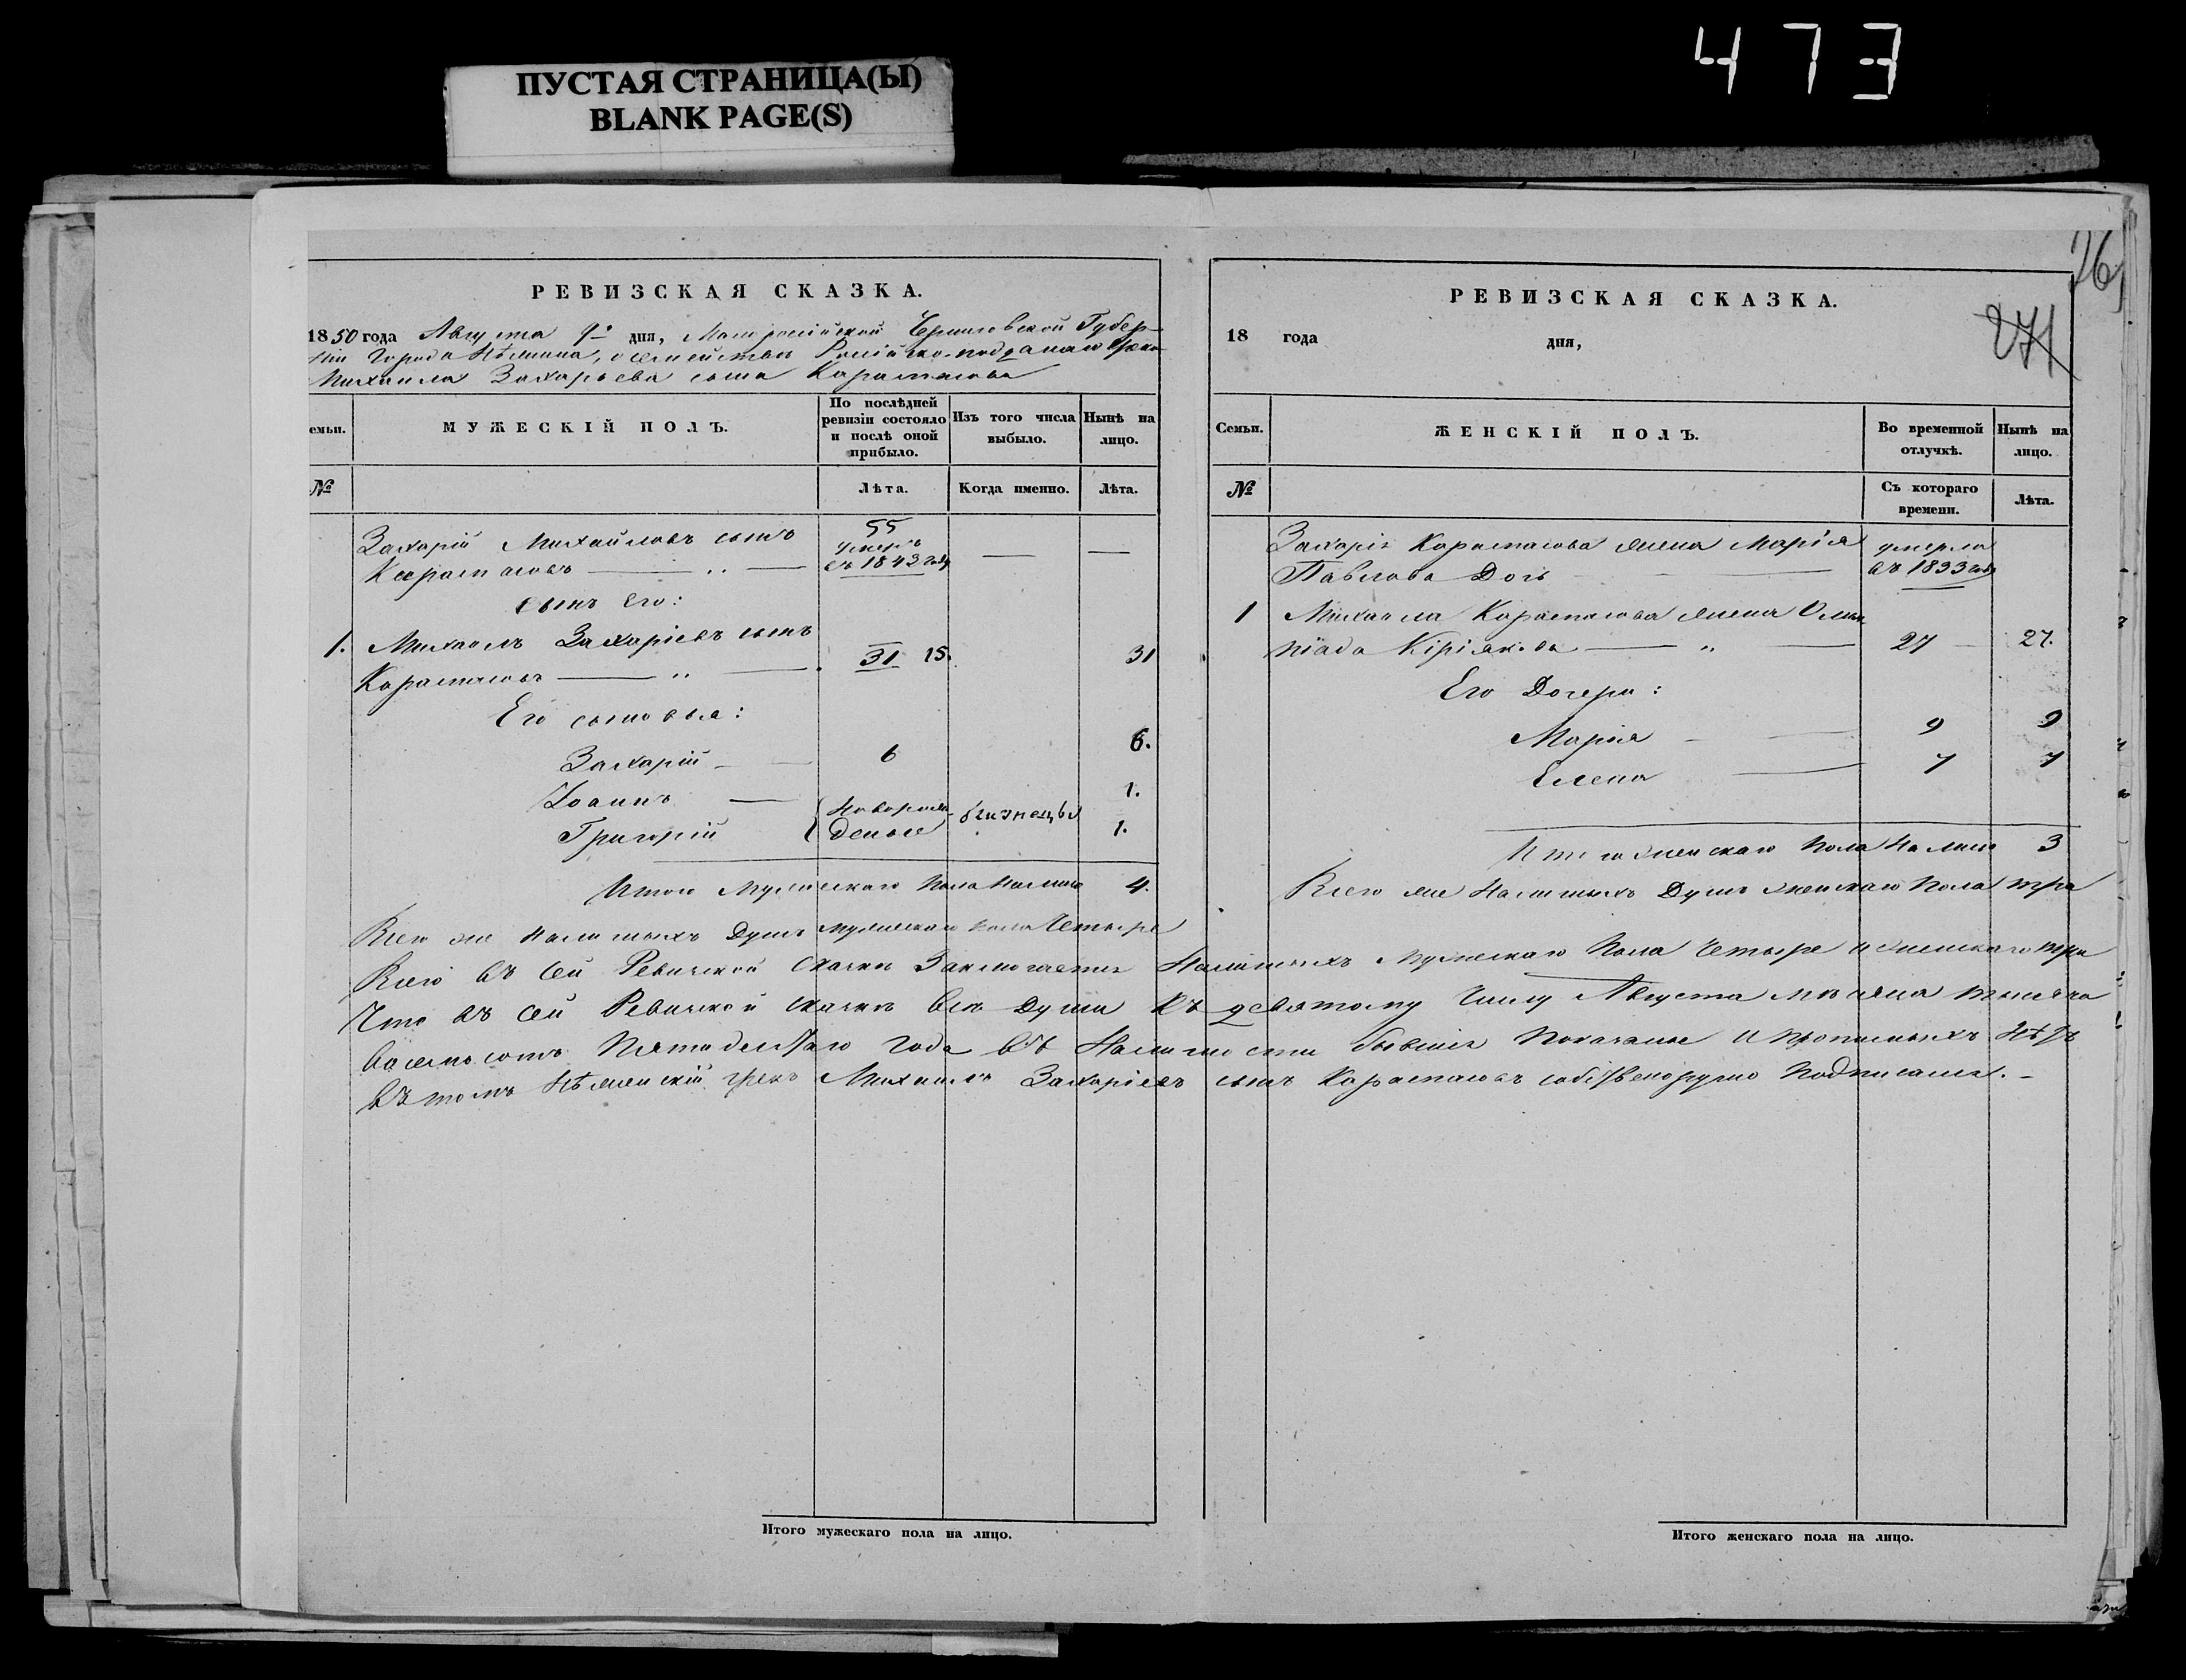 473
ПУСТАЯ СТРАНИЦА(Ы)
BLANK PAGE(S)
РЕВИЗСКАЯ СКАЗКА.
1850 года Августа 9º дня, Малороссійской Черниговской Губер-
ніи Города Нѣжина, о семействѣ Россійско-подданаго Грека
Михаила Захарьева сына Карастасова
емьи.
МУЖЕСКІЙ ПОЛЪ.
По послѣдней ревизіи состояло и послѣ оной прибыло.
Изъ того числа выбыло.
Нынѣ на лицо.
№
Лѣта.
Когда именно.
Лѣта.
Захарій Михайловъ сынъ 55
умеръ — —
Карастасовъ — „ — въ 1843 году
сынъ Его:
1. Михаилъ Захаріевъ сынъ
Карастасовъ — „ — 31 15. 31
Его сыновья:
Захарій — 6 6.
Іоаннъ — 1.
Григорій { Новорож-
деные близнецы 1.
Итого Мужескаго Пола Налицо 4.
Всего же Наличныхъ Душъ мужескаго пола Четыре
РЕВИЗСКАЯ СКАЗКА.
26
271
18 года дня,
Семьи.
ЖЕНСКІЙ ПОЛЪ.
Во временной отлучкѣ.
Нынѣ на лицо.
№
Съ котораго времени.
Лѣта.
Захарія Карастасова жена Марія умерла
Павлова Дочь — въ 1833 году
1 Михаила Карастасова жена Олим
піада Кіріякова — „ — 27 — 27.
Его Дочери:
Марія — 9 9
Елена — 7 7
Итого женскаго Пола На лицо 3
Всего же Наличныхъ Душъ женскаго Пола три
Всего въ сей Ревизской Сказкѣ Заключается Наличныхъ Мужескаго Пола Четыре и женскаго три
Что въ сей Ревизской Сказкѣ Всѣ Души Къ девятому Числу Августа мѣсяца тысяча
восемьсотъ Пятидесятаго года Въ Наличности бывшія Показаные И прописныхъ Нѣтъ
Въ томъ Нѣжинскій грекъ Михаилъ Захаріевъ сынъ Карастасовъ собственоручно Подписался.
Итого мужескаго пола на лицо.
Итого женскаго пола на лицо.